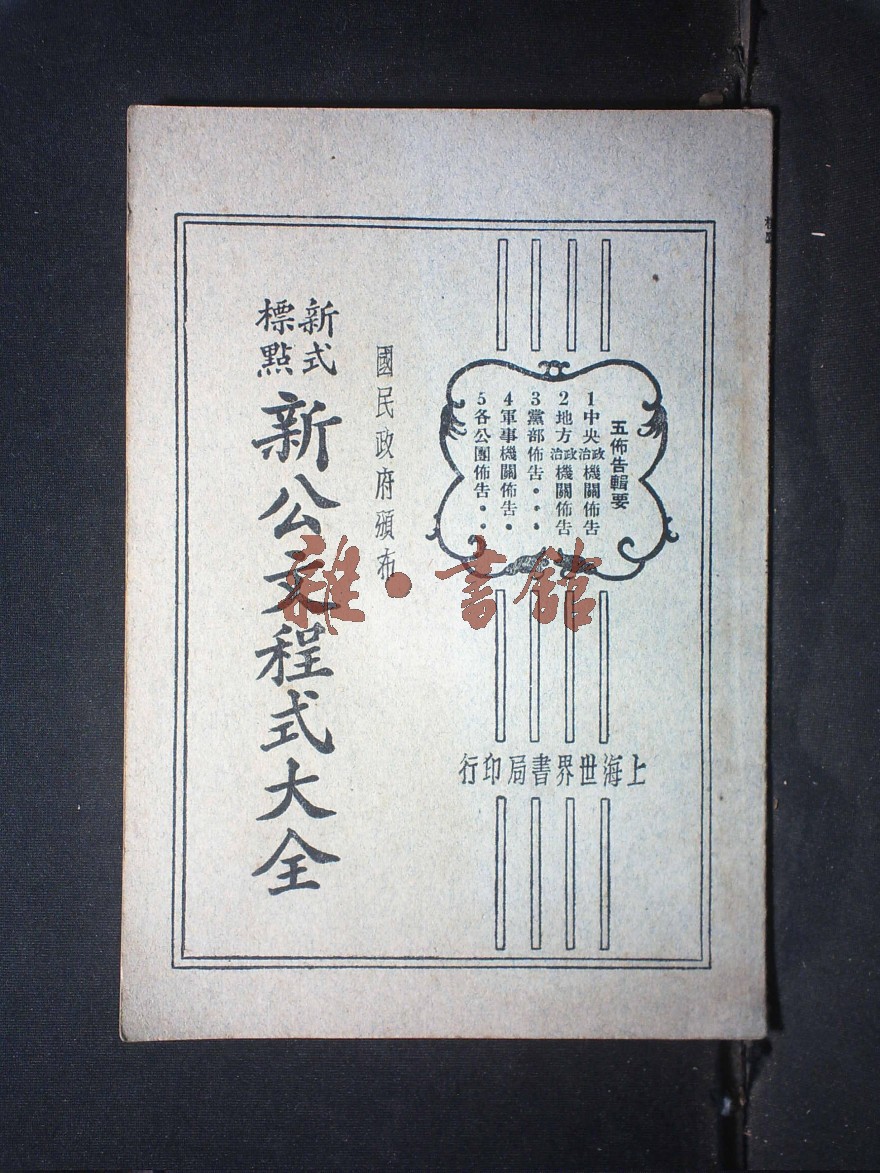 五佈告輯要
1中央政治機關佈告
2地方政治機關佈告
3黨部佈告・・・
4軍事機關佈告・
5各公團佈告・・
國民政府頒布
新式
標點
新公文程式大全
上海世界書局印行
雜・書館